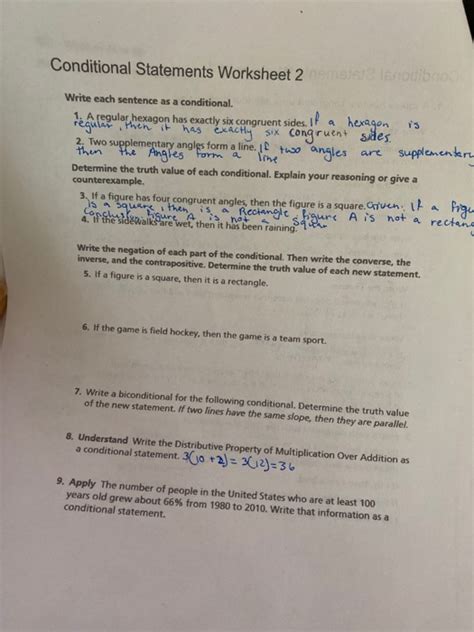 Conditional Statements Worksheet 2
Write each sentence as a conditional.
1. A regular hexagon has exactly six congruent sides. If a hexagon is
regular, then it has exactly six congruent sides
2. Two supplementary angles form a line. If two angles are supplementary
then the Angles form a line
Determine the truth value of each conditional. Explain your reasoning or give a
counterexample.
3. If a figure has four congruent angles, then the figure is a square. Given. If a figu
is a square, then is a Rectangle. Figure A is not a rectang
Conclusion Figure A is not a square
4. If the sidewalks are wet, then it has been raining.
Write the negation of each part of the conditional. Then write the converse, the
inverse, and the contrapositive. Determine the truth value of each new statement.
5. If a figure is a square, then it is a rectangle.
6. If the game is field hockey, then the game is a team sport.
7. Write a biconditional for the following conditional. Determine the truth value
of the new statement. If two lines have the same slope, then they are parallel.
8. Understand Write the Distributive Property of Multiplication Over Addition as
a conditional statement. 3(10 + 2) = 3(12) = 36
9. Apply The number of people in the United States who are at least 100
years old grew about 66% from 1980 to 2010. Write that information as a
conditional statement.